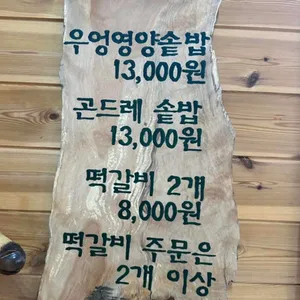 우엉영양솥밥
13,000원
곤드레 솥밥
13,000원
떡갈비 2개
8,000원
떡갈비 주문은
2개 이상